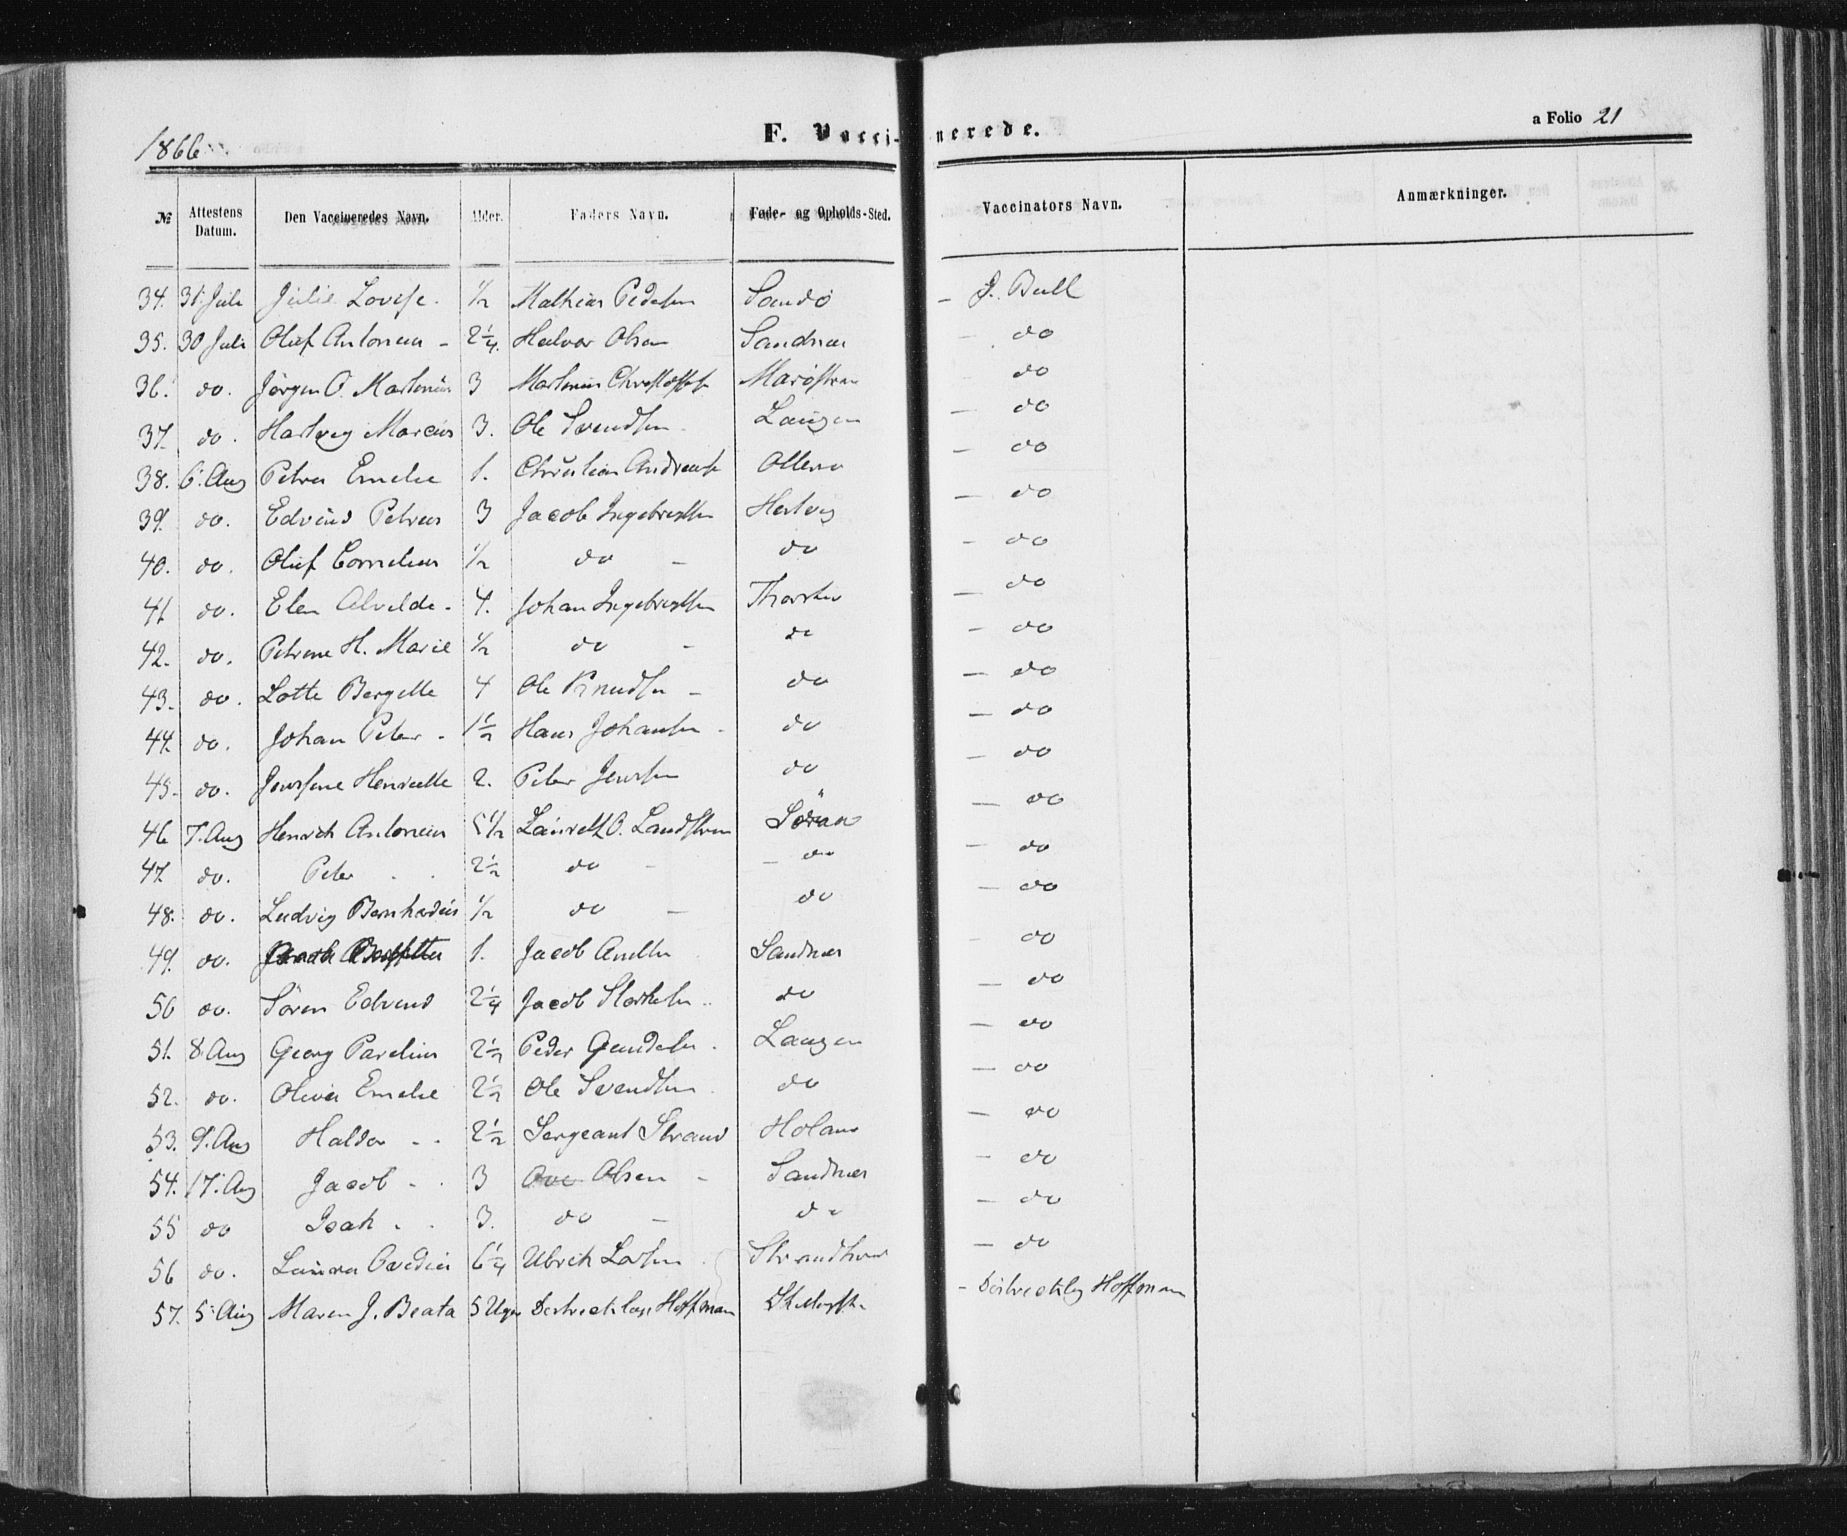 1866
F. Vacci- nerede.
a Folio 21
№ Attestens Datum. Den Vaccineredes Navn. Alder. Faders Navn. Føde- og Opholds-Sted. Vaccinators Navn. Anmærkninger.
34. 31. Juli Julie Lovise. 1/2 Mathias Pedersen Sandø - J. Bull
35. 30 Juli Oluf Antonius - 2 1/4. Halvor Olsen Sandnæs - do
36. do. Jørgen O. Martonius 3 - do
37. do. Hartvig Marcius 3. Ole Svendsen Laugen - do
38. 6. Aug Petra Emelie 1. Christian Andreas - do
39. do. Edvind Petreus 3 Jacob Ingebrigtsen - do
40. do. Oluf Cornelius 1/2 do - do - do
41 do. Elen Alvilde - 4. Johan Ingebrigtsen - do
42. do. Petrine H. Marie 1/2 do - do - do
43. do. Lotte Bergette 4 Ole Knudsen - do - do
44. do. Johan Peter - 1 1/2 Hans Johansen - do - do
45. do. Jensine Henriette 2. Peter Jensen do - do
46 7. Aug Henrik Antonius 5 1/2 Lauritz O. Landstrøm - do
47. do. Peter 2 1/2 do - - do - do
48. do. Ludvig Bernhardus 1/2 do - do - do
49. do. 1. Jacob Sandnæs - do
50 do. Søren Edvind 2 1/4 Jacob do - do
51. 8. Aug Georg Parelius 2 1/2 Peder Laugen - do
52. do. Oliva Emelie 2 1/2 Ole Svendsen do - do
53. 9. Aug Haldor 2 1/2 Sergeant Strand Holand - do
54. 17. Aug Jacob - 3 Ove Olsen - Sandnæs - do
55 do Isak 3. do - do - do
56 do. Laura Ovedia 6 1/4 Ulrich Larsen - do
57. 5. Aug Maren J. Beata 5 Uger Hoffman - Hoffman